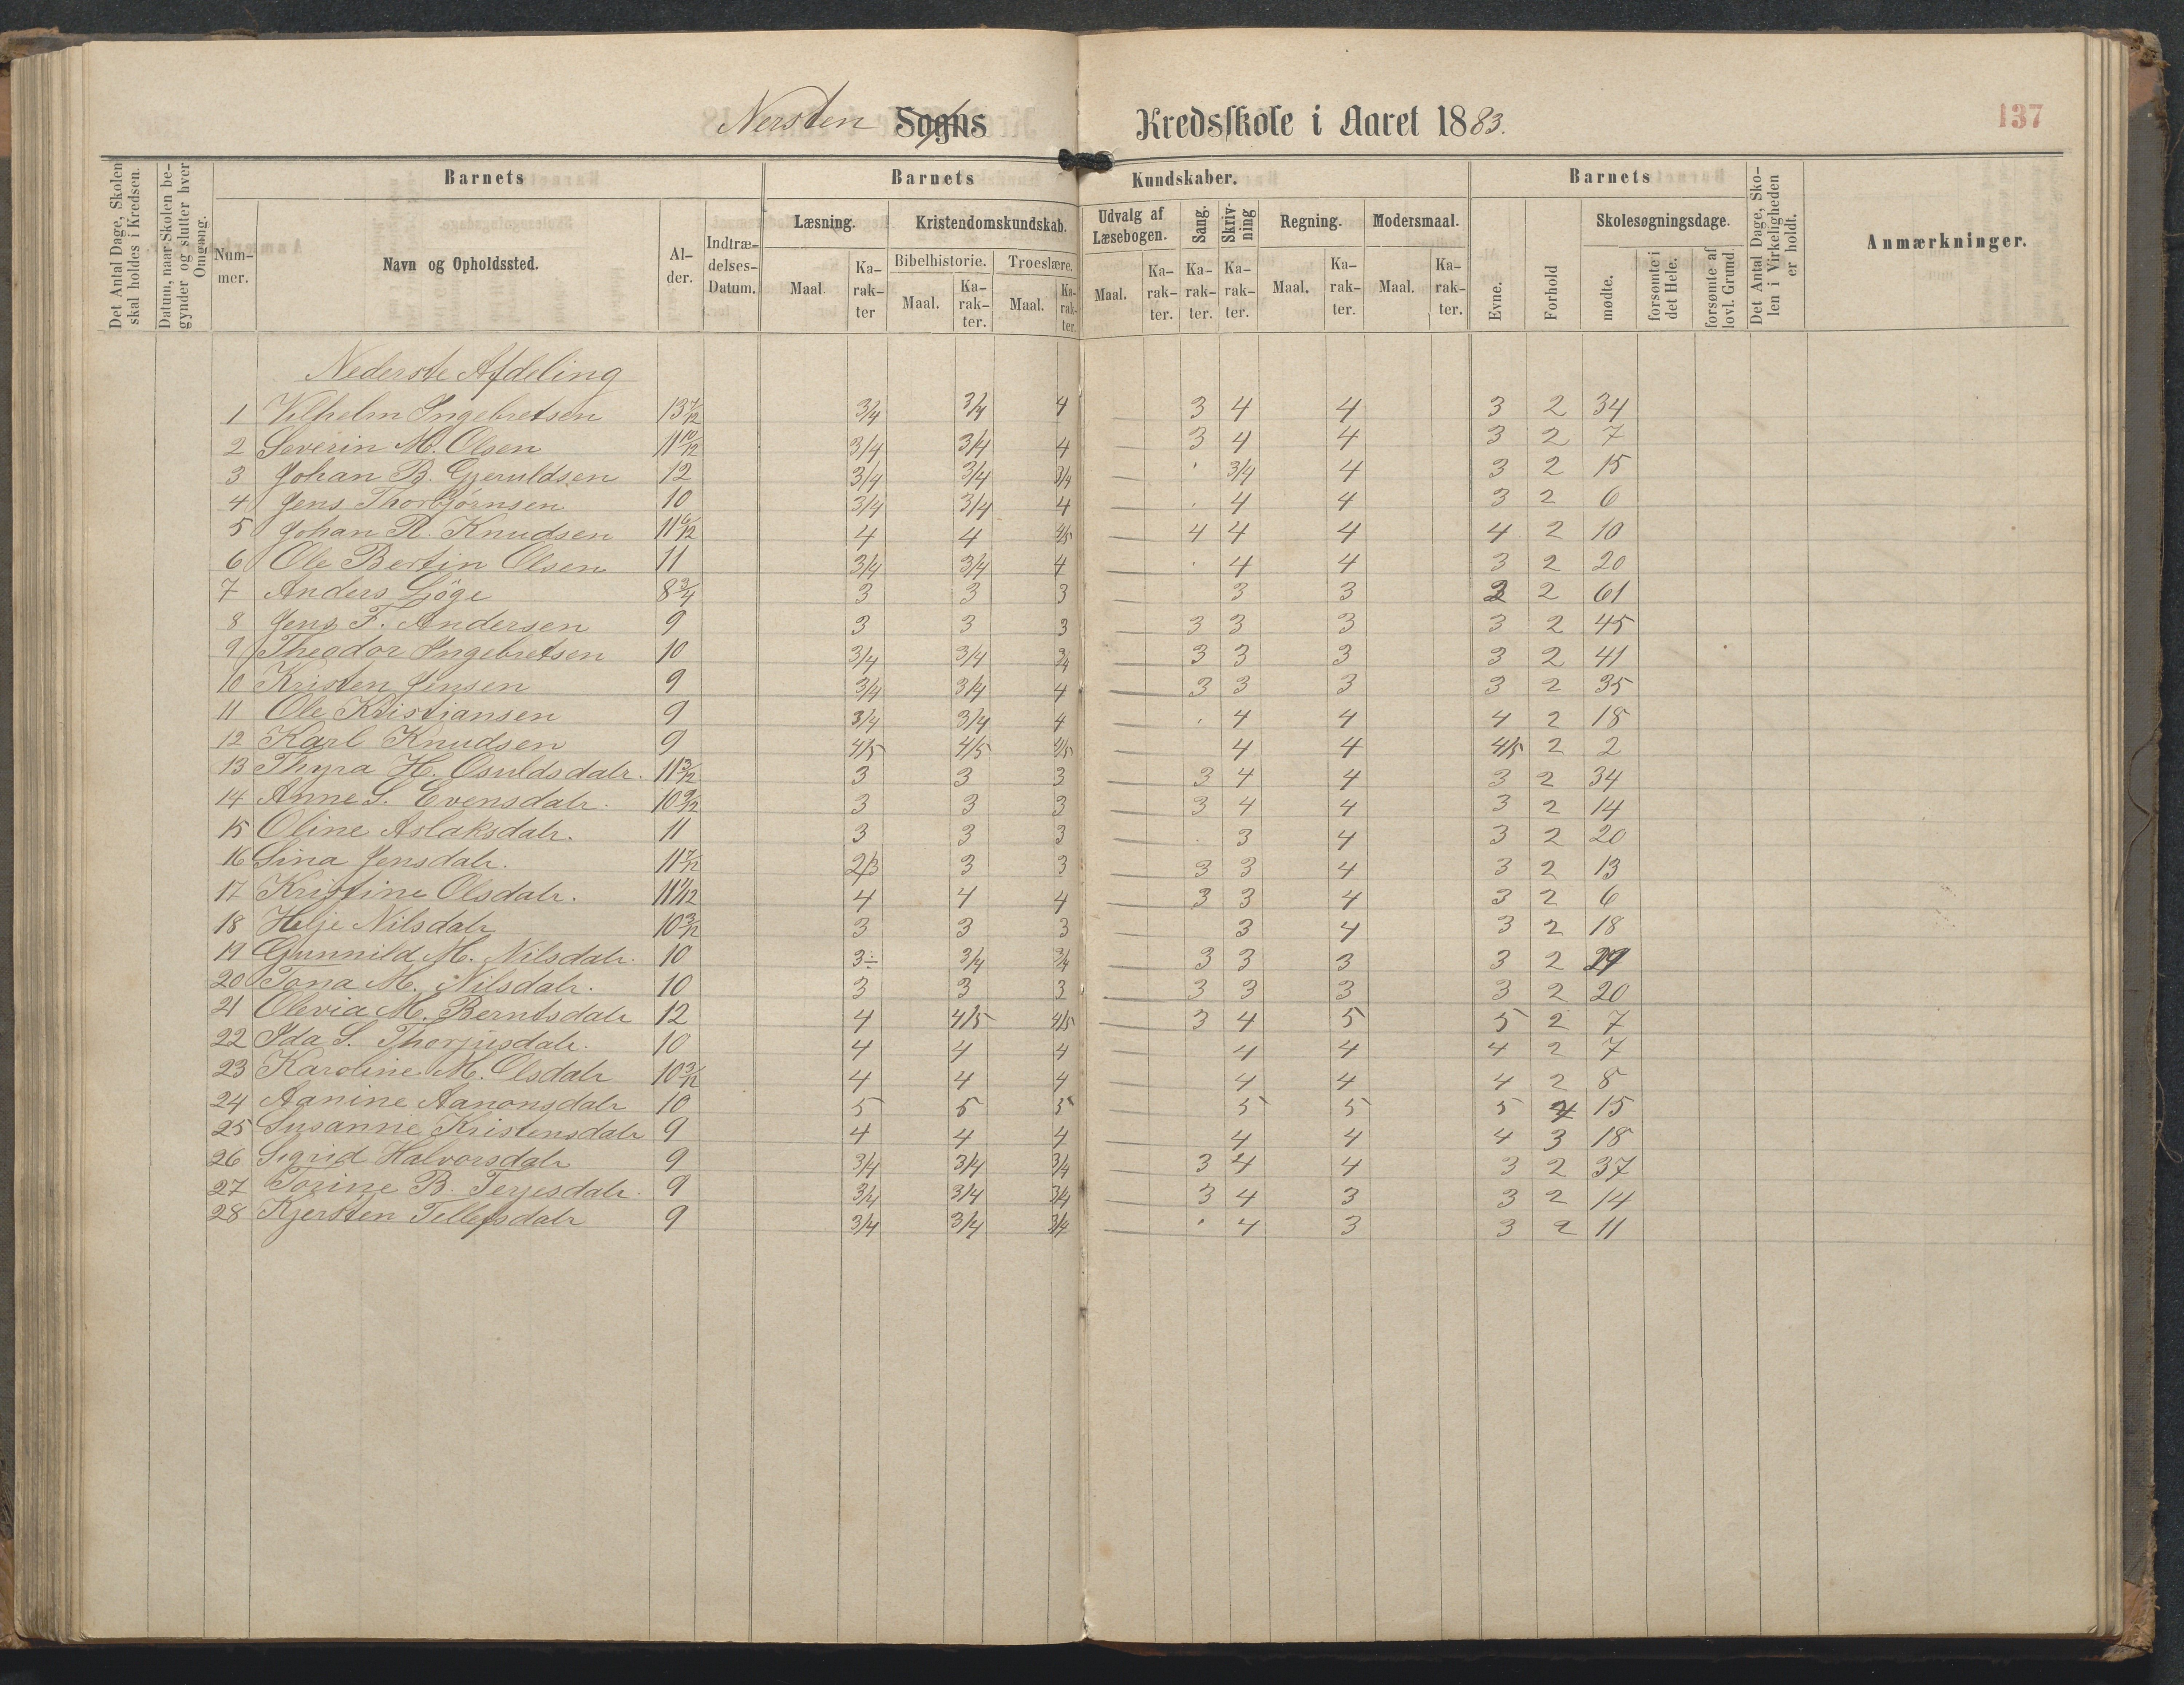 Nersten Sogns Kredsskole i Aaret 1883.
137
Det Antal Dage, Skolen skal holdes i Kredsen.
Datum, naar Skolen be-gynder og slutter hver Omgang.
Barnets Barnets Kundskaber. Barnets
Num-mer. Navn og Opholdssted. Al-der. Indtræ-delses-Datum.
Læsning. Kristendomskundskab. Udvalg af Læsebogen. Sang. Skriv-ning Regning. Modersmaal.
Bibelhistorie. Troeslære.
Maal Ka-rak-ter Maal. Ka-rak-ter. Maal. Ka-rak-ter. Maal. Ka-rak-ter. Ka-rak-ter. Ka-rak-ter. Maal. Ka-rak-ter. Maal. Ka-rak-ter.
Evne. Forhold Skolesøgningsdage. mødte. forsømte i det Hele. forsømte af lovl. Grund.
Det Antal Dage, Sko-len i Virkeligheden er holdt.
Anmærkninger.
Nederste Afdeling
1 Vilhelm Ingebretsen 13 7/12 3/4 3/4 4 — 3 4 4 3 2 34
2 Severin M. Olsen 11 10/12 3/4 3/4 4 — 3 4 4 3 2 7
3 Johan B. Gjeruldsen 12 3/4 3/4 3/4 — . 3/4 4 3 2 15
4 Jens Thorbjørnsen 10 3/4 3/4 4 — . 4 4 3 2 6
5 Johan R. Knudsen 11 6/12 4 4 4/5 — 4 4 4 4 2 10
6 Ole Bertin Olsen 11 3/4 3/4 4 — . 4 4 3 2 20
7 Anders Löge 8 3/4 3 3 3 — 3 3 2 61
8 Jens F. Andersen 9 3 3 3 — 3 3 3 3 2 45
9 Theodor Ingebretsen 10 3/4 3/4 3/4 — 3 3 3 3 2 41
10 Kristen Jensen 9 3/4 3/4 4 — 3 3 3 3 2 35
11 Ole Kristiansen 9 3/4 3/4 4 — . 4 4 4 2 18
12 Karl Knudsen 9 4/5 4/5 4/5 — 4 4 4/5 2 2
13 Thyra H. Osuldsdatr. 11 3/12 3 3 3 — 3 4 4 3 2 34
14 Anne S. Evensdatr. 10 9/12 3 3 3 — 3 4 4 3 2 14
15 Oline Aslaksdatr. 11 3 3 3 — . 3 4 3 2 20
16 Sina Jensdatr. 11 7/12 2/3 3 3 — 3 3 4 3 2 13
17 Kristine Olsdatr. 11 1/12 4 4 4 — 3 3 4 3 2 6
18 Helje Nilsdatr 10 3/12 3 3 3 — 3 4 3 2 18
19 Gunnild M. Nilsdatr. 10 3÷ 3/4 3/4 — 3 3 3 3 2
20 Tona M. Nilsdatr. 10 3 3 3 — 3 3 3 3 2 20
21 Olevia M. Berntsdatr 12 4 4/5 4/5 — 3 4 5 5 2 7
22 Ida S. Thorjusdatr. 10 4 4 4 — 4 4 4 2 7
23 Karoline M. Olsdatr 10 3/12 4 4 4 — 4 4 4 2 8
24 Aanine Aanonsdatr 10 5 5 5 — 5 5 5 15
25 Susanne Kristensdatr 9 4 4 4 — 4 4 4 3 18
26 Sigrid Halvorsdatr 9 3/4 3/4 3/4 — 3 4 4 3 2 37
27 Torine B. Terjesdatr. 9 3/4 3/4 3/4 — 3 4 3 3 2 14
28 Kjersten Tellefsdatr 9 3/4 3/4 3/4 — . 4 3 3 2 11